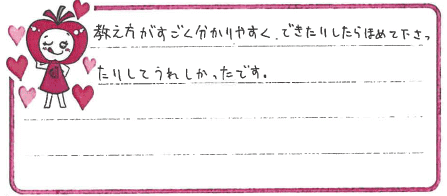 教え方がすごく分かりやすく、できたりしたらほめて下さっ
たりしてうれしかったです。